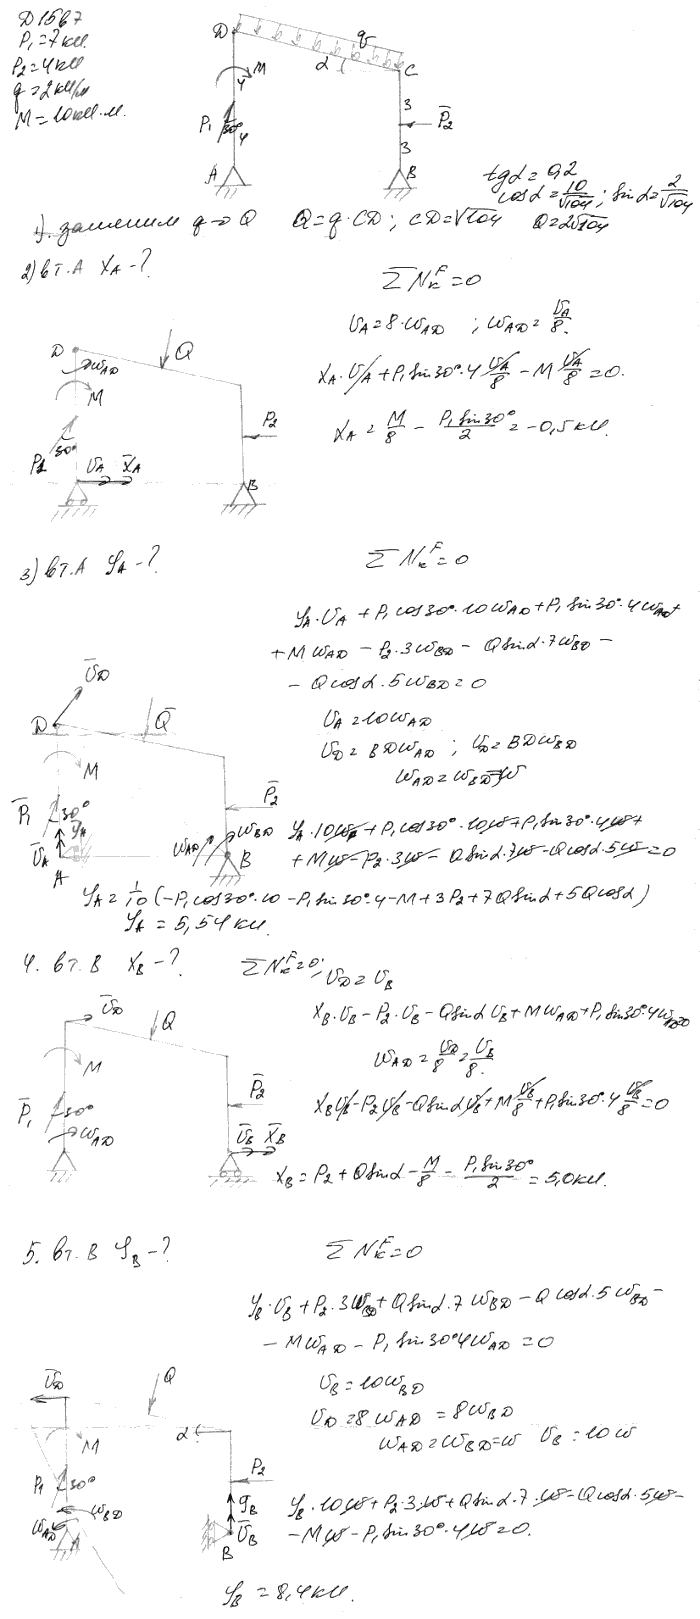 D15в7
P₁=7кН.
P₂=4кН
q=2кН/м
M=10кН·м.
D q
M α C
4 3 P̄₂
P₁ 30° 4
3
A B
tgα=0,2
cosα=10/√104; sinα=2/√104
1). заменим q→Q Q=q·CD; CD=√104 Q=2√104
2) в т.A X_A-?
ΣN_к^F=0
U_A=8·ω_AD ; ω_AD=U_A/8.
D Q
ω_AD
M
X_A·U_A+P₁sin30°·4U_A/8-M U_A/8=0.
P₂
X_A=M/8-P₁sin30°/2=-0,5кН.
P₁ 30° Ū_A X̄_A B
3) в т.A Y_A-?
ΣN_к^F=0
Y_A·U_A+P₁cos30°·10ω_AD+P₁sin30°·4ω_AD+
+Mω_AD-P₂·3ω_BD-Qsinα·7ω_BD-
-Qcosα·5ω_BD=0
Ū_D
D Q̄
U_A=10ω_AD
U_D=BDω_AD ; U_D=BDω_BD
ω_AD=ω_BD=ω
M
P̄₁ 30° P̄₂
Ȳ_A
Ū_A ω_AD ω_BD
A B
Y_A·10ω+P₁cos30°·10ω+P₁sin30°·4ω+
+Mω-P₂·3ω-Qsinα·7ω-Qcosα·5ω=0
Y_A=1/10(-P₁cos30°·10-P₁sin30°·4-M+3P₂+7Qsinα+5Qcosα)
Y_A=5,54кН.
4. в т.B X_B-? ΣN_к^F=0; U_D=U_B
Ū_D Q
X_B·U_B-P₂·U_B-QsinαU_B+Mω_AD+P₁sin30°·4ω_AD=0
ω_AD=U_D/8=U_B/8.
M
P̄₂
P̄₁ 30°
ω_AD
Ū_B X̄_B
X_BU_B-P₂U_B-QsinαU_B+M U_B/8+P₁sin30°·4U_B/8=0
X_B=P₂+Qsinα-M/8-P₁sin30°/2=5,0кН.
5. в т.B Y_B-?
ΣN_к^F=0
Y_B·U_B+P₂·3ω_BD+Qsinα·7ω_BD-Qcosα·5ω_BD-
-Mω_AD-P₁sin30°4ω_AD=0
Ū_D Q
U_B=10ω_BD
U_D=8ω_AD=8ω_BD
ω_AD=ω_BD=ω U_B=10ω
M
P₂
P₁ 30°
ω_BD
ω_AD
A
Ȳ_B
Ū_B
B
Y_B·10ω+P₂·3ω+Qsinα·7·ω-Qcosα·5ω-
-Mω-P₁sin30°·4ω=0.
Y_B=8,4кН.